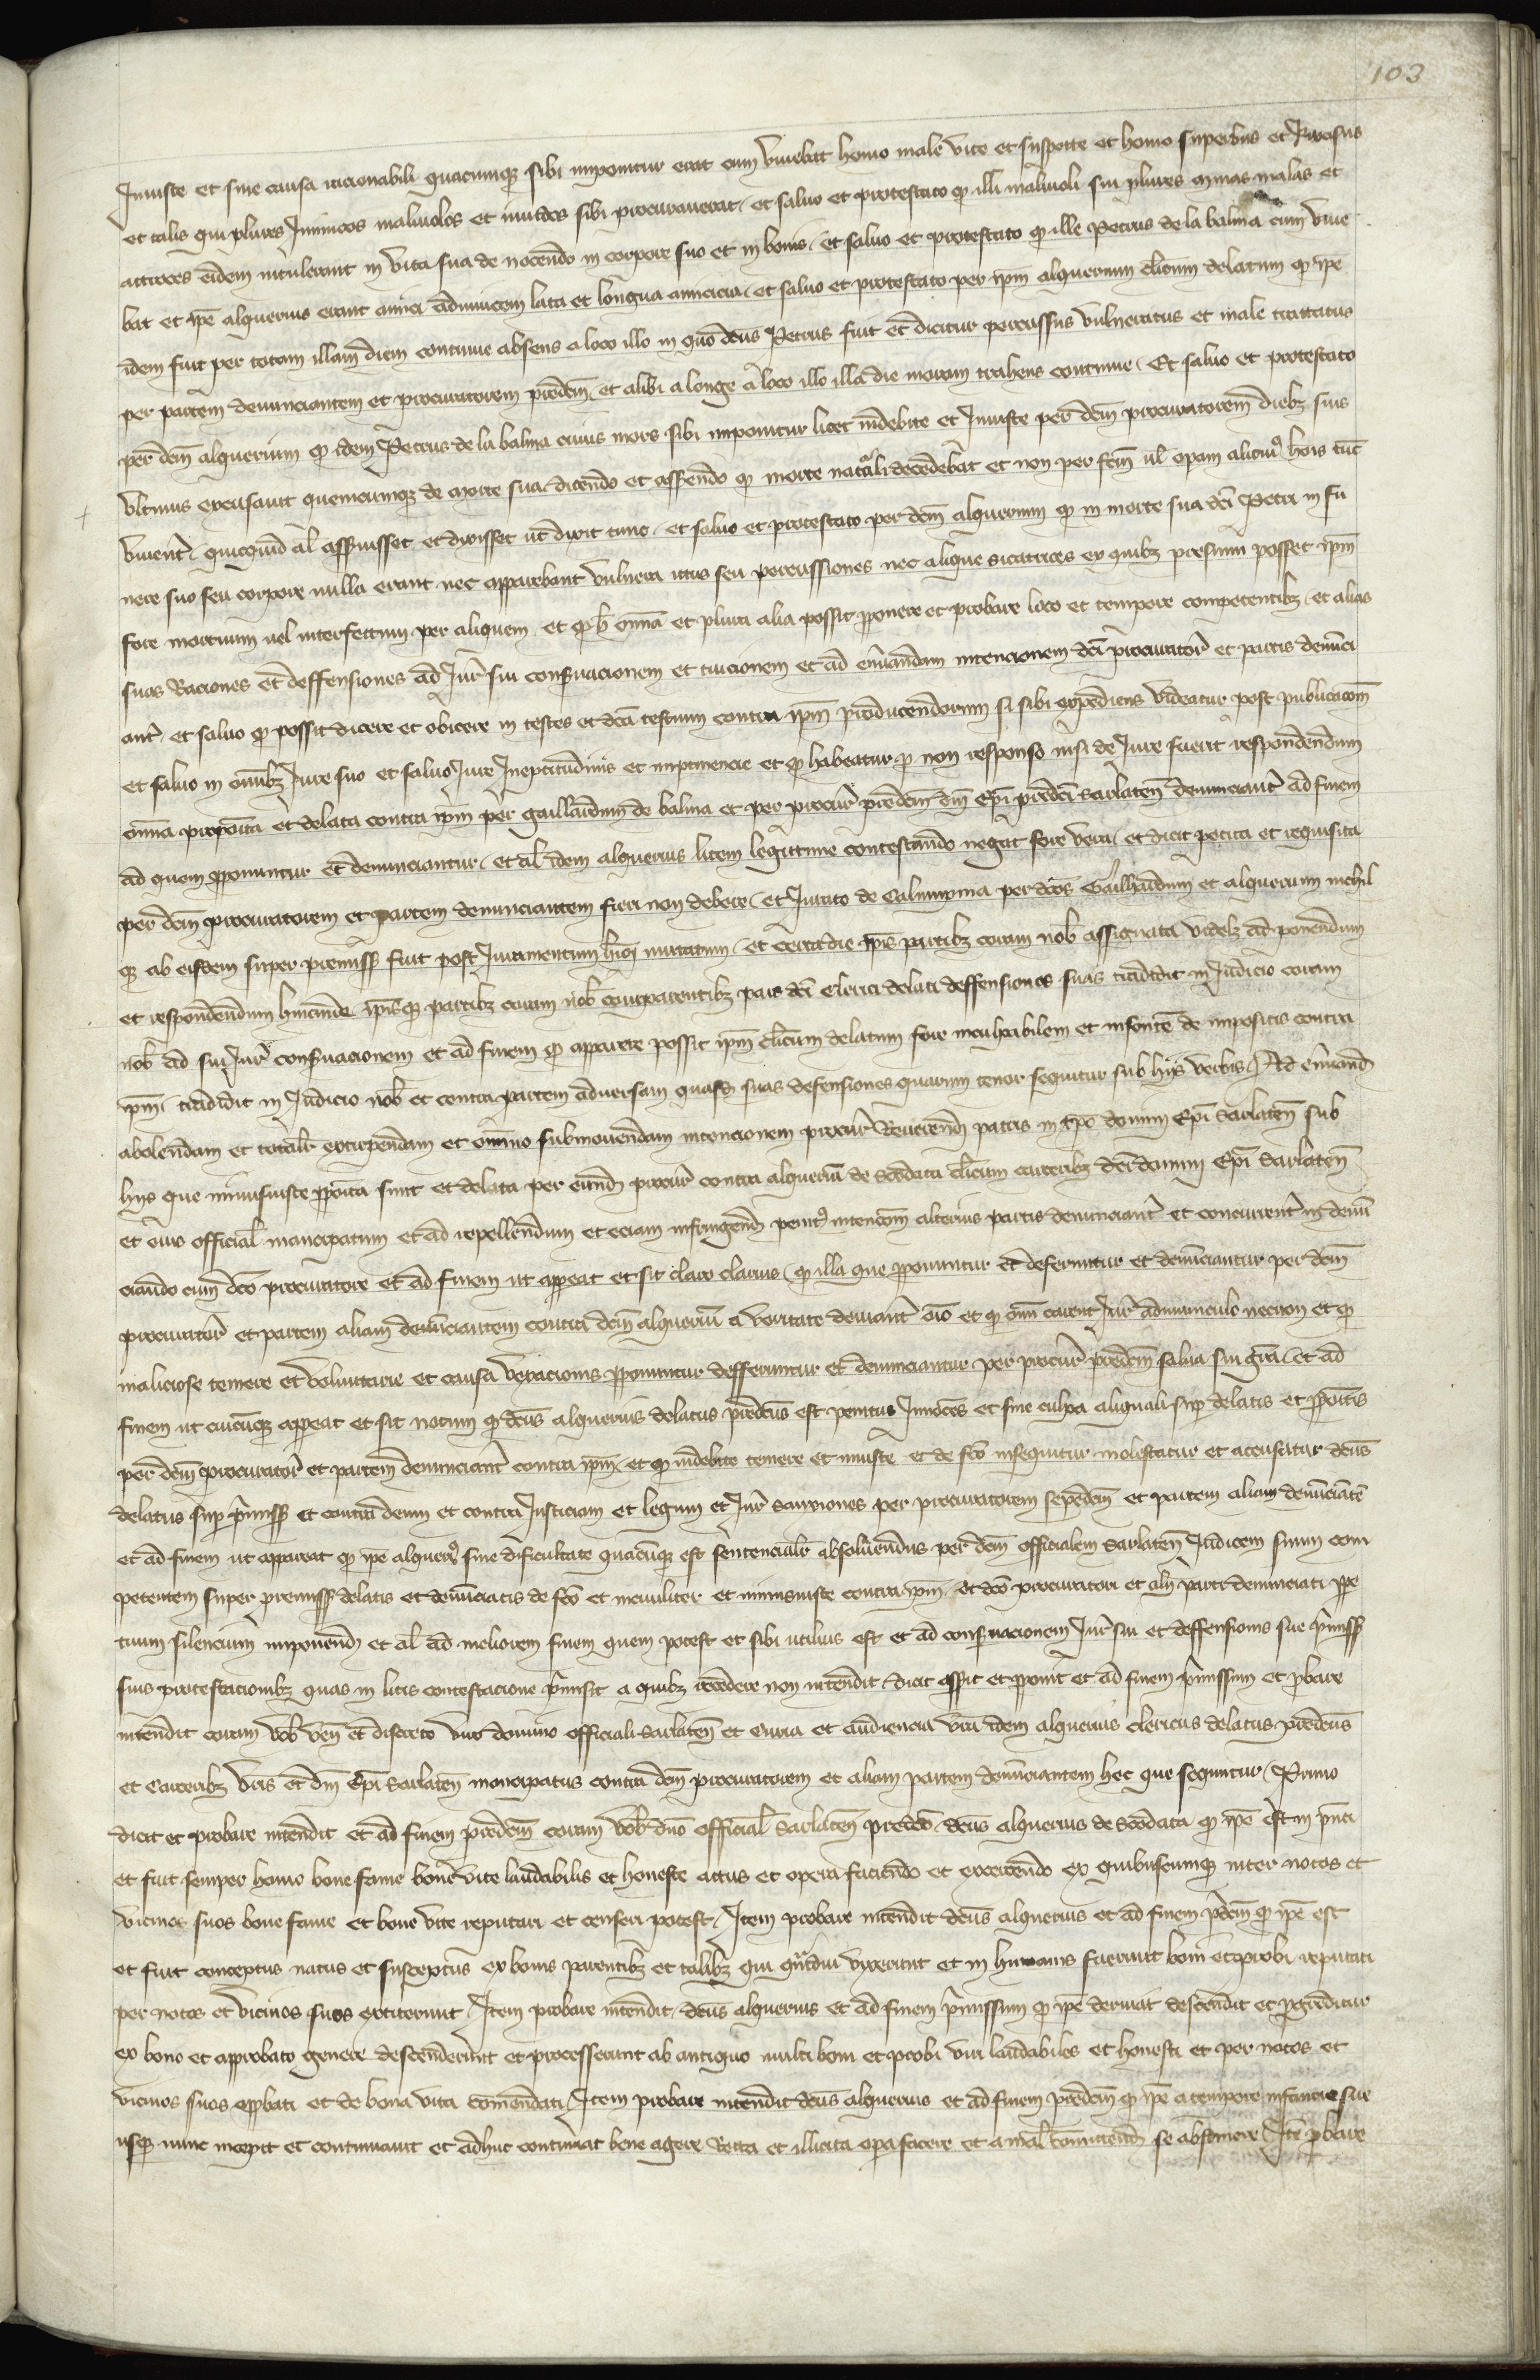 103
Iniuste et sine causa racionabili quacumq3 sibi imponitur erat cum viuebat homo male vite et suspecte et homo superbus et Rixosus
et talis qui plures Inimicos maliuolos et inuidos sibi procurauerat / et saluo et protestato qꝫ illi maliuoli sui plures minas malas et
atroces eidem intulerant in vita sua de nocendo in corpore suo et in bonis / et saluo et protestato qꝫ ille Petrus de la balma cum viue
bat et ip̄e alquerius erant amici adinuicem lata et longua amicicia / et saluo et protestato per ip̄m alquerium cl̄icum delatum qꝫ ip̄e
idem fuit per totam illam diem continue absens a loco illo in quo dc̄us Petrus fuit et dicitur percussus vulneratus et male tractatus
per partem denunciantem et procuratorem p̄dem̄ / et alibi a longe a loco illo illa die moram trahens continue / Et saluo et protestato
per dc̄m alquerium qꝫ idem Petrus de la balma cuius mors sibi imponitur licet indebite et Iniuste per dc̄m procuratorem dieb3 suis
vltimis excusauit quemcumq3 de morte sua dicendo et asserendo qꝫ morte naturali decedebat et non per fc̄m ul̄ opam alicuiꝰ hōis tūc
viuent̄ / quicquid al̄ asseruisset et dixisset ut dixit tunc / et saluo et protestato per dc̄m alquerium qꝫ in morte sua dc̄i Petri in fu
nere suo seu corpore nulla erant nec apparebant vulnera ictus seu percussiones nec alique sicatrices ex quib3 presumi posset ip̄m
fore mortuum uel interfectum per aliquem / et qꝫ h̄ om̄ia et plura alia possit proponere et probare loco et tempore competentib3 / et alias
suas Raciones et deffensiones ad Iur̄ sui conseruacionem et tuicionem et ad eneruandam intencionem dc̄i procurator̄ et partis denunci
ant̄ / et saluo qꝫ possit dicere et obicere in testes et dc̄a testium contra ip̄m producendorum si sibi expediens videatur post publicacōm
et saluo in om̄ib3 Iure suo et saluo Iure Ineptitudinis et impertinencie et qꝫ habeatur p non responso nisi de Iure fuerit respondendum
om̄ia proposita et delata contra ip̄m per gaillardum de balma et per procur̄ p̄dem̄ dn̄i Ep̄i predc̄i Sarlaten̄ denunciant̄ ad finem
ad quem proponuntur et denunciantur / et al̄ idem alquerius litem legittime contestando negat fore vera / et dicit petita et requisita
per dc̄m procuratorem et partem denunciantem fieri non debere / et Iurato de Calumpnia per dc̄os Gailhardum et alquerium nichil
q3 ab eisdem super premiss̄ fuit post Iuramentum hm̄oi mutatum / et certa die ip̄is partib3 coram nob̄ assignata videl3 ad ponendum
et respondendum hincinde ip̄isq3 partib3 coram nob̄ comparentib3 pars dc̄i clerici delati deffensiones suas tradidit in Iudicio coram
nob̄ ad sui Iur̄ conseruacionem et ad finem qꝫ apparere possit ip̄m cl̄icum delatum fore inculpabilem et insontē de impositis contra
ip̄m / tradidit in Iudicio nob̄ et contra partem aduersam quasd̄ suas defensiones quarum tenor sequitur sub hijs verbis / Ad eneruand̄
abolendam et totalit̄ extirpendam et om̄ino submouendam intencionem procur̄ Reuerend̄ patris in xp̄o domini Ep̄i Sarlaten̄ sub
hijs que minusiuste pposita sunt et delata per eund̄ procur̄ contra alqueriū de clericum carcerib3 dc̄i domini Ep̄i Sarlaten̄
et eius official̄ mancipatum et ad repellendum et eciam infringend̄ penitꝰ intencōm alterius partis denunciant̄ et concurrent̄ in denū
ciando cum dc̄o procuratore et ad finem ut appeat et sit claro clarius / qꝫ illa que pponuntur et deferuntur et denunciantur per dc̄m
procurator̄ et partem aliam denunciantem contra dc̄m alqueriū a veritate deuiant om̄io et qꝫ om̄i carent Iur̄ adminiculo necnon et qꝫ
maliciose temere et voluntarie et causa vexacionis pponuntur defferuntur et denunciantur per procur̄ p̄dem̄ salua sui gr̄a / et ad
finem ut cuicūq3 appeat et sit notum qꝫ dc̄us alquerius delatus predc̄us est penitus Innocēs et sine culpa aliquali sup delatis et ppositis
per dc̄m procurator̄ et partem denunciant̄ contra ip̄m / et qꝫ indebite temere et iniuste et de fc̄o insequitur molestatur et accusatur dc̄us
delatus sup p̄miss̄ et contra deum et contra Iusticiam et legum et Iur̄ sanxiones per procuratorem sepedem̄ et partem aliam denunciātē
et ad finem ut appareat qꝫ ip̄e alqueriꝰ sine dificultate quacūq3 est sentencialit̄ absoluendus per dc̄m officialem Sarlaten̄ Iudicem suum com
petentem super premiss̄ delatis et denunciatis de fc̄o et inciuiliter et minusiuste contra ip̄m / et dc̄o procuratori et alij parti denuncianti ppe
tuum silencium imponend̄ et al̄ ad meliorem finem quem potest et sibi utilius est et ad conseruacionem Iur̄ sui et deffensionis sue p̄miss̄
suis protestacionib3 quas in litis contestacione p̄misit a quib3 recedere non intendit / dicit asserit et pponit et ad finem p̄missum et pbare
intendit coram vob̄ ven̄ et discreto viro domino officiali Sarlaten̄ et Curia et audiencia vr̄a idem alquerius clericus delatus predc̄us
et Carcerib3 vr̄is et dn̄i Ep̄i Sarlaten̄ mancipatus contra dc̄m procuratorem et aliam partem denunciantem hec que sequntur / Primo
dicit et probare intendit et ad finem predem̄ coram vob̄ dn̄o official̄ Sarlaten̄ predc̄o dc̄us alquerius de qꝫ ip̄e est in p̄nti
et fuit semper homo bone fame bone vite laudabilis et honeste actus et opera faciendo et exercendo ex quibuscumq3 inter notos et
vicinos suos bone fame et bone vite reputari et censeri potest / Item probare intendit dc̄us alquerius et ad finem p̄dem̄ qꝫ ip̄e est
et fuit conceptus natus et susceptus ex bonis parentib3 et talib3 qui quādiu vixerunt et in humanis fuerunt boni et probi reputati
per notos et vicinos suos extiterunt / Item probare intendit dc̄us alquerius et ad finem p̄missum qꝫ ip̄e deriuat descendit et pgreditur
ex bono et approbato genere descenderunt et processerunt ab antiquo multi boni et probi viri laudabiles et honesti et per notos et
vicinos suos appbati et de bona vita comendati / Item probare intendit dc̄us alquerius et ad finem predem̄ qꝫ ip̄e a tempore infancie sue
usq3 nunc incepit et continuauit et adhuc continuat bene agere Recta et illicita opa facere et a mal̄ comittend̄ se abstinere / Itē pbare